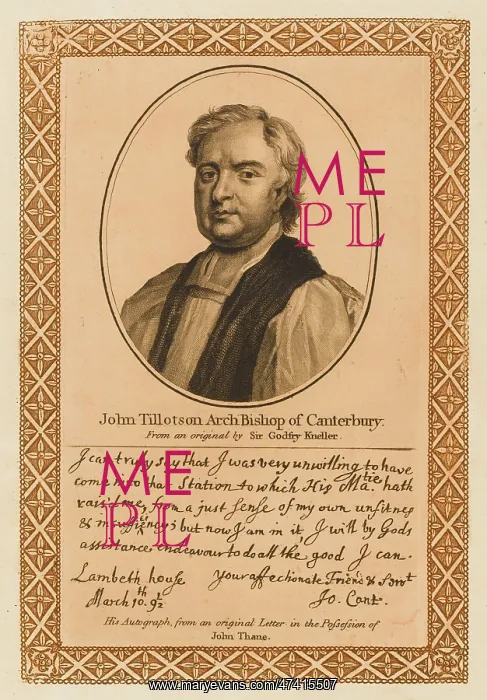 ME
PL
John Tillotson Arch Bishop of Canterbury.
From an original by Sir Godfry Kneller.
I can truly say that I was very unwilling to have
come into that Station to which His Ma.tie hath
rais'd me, from a just sense of my own unfitnes
& insufficiency; but now I am in it, I will by Gods
assistance endeavour to do all the good I can.
Lambeth house Your affectionate Friend & Servt
March 10.th 9½ Jo. Cant.
ME
PL
His Autograph, from an original Letter in the Possession of
John Thane.
www.maryevans.com/47415507